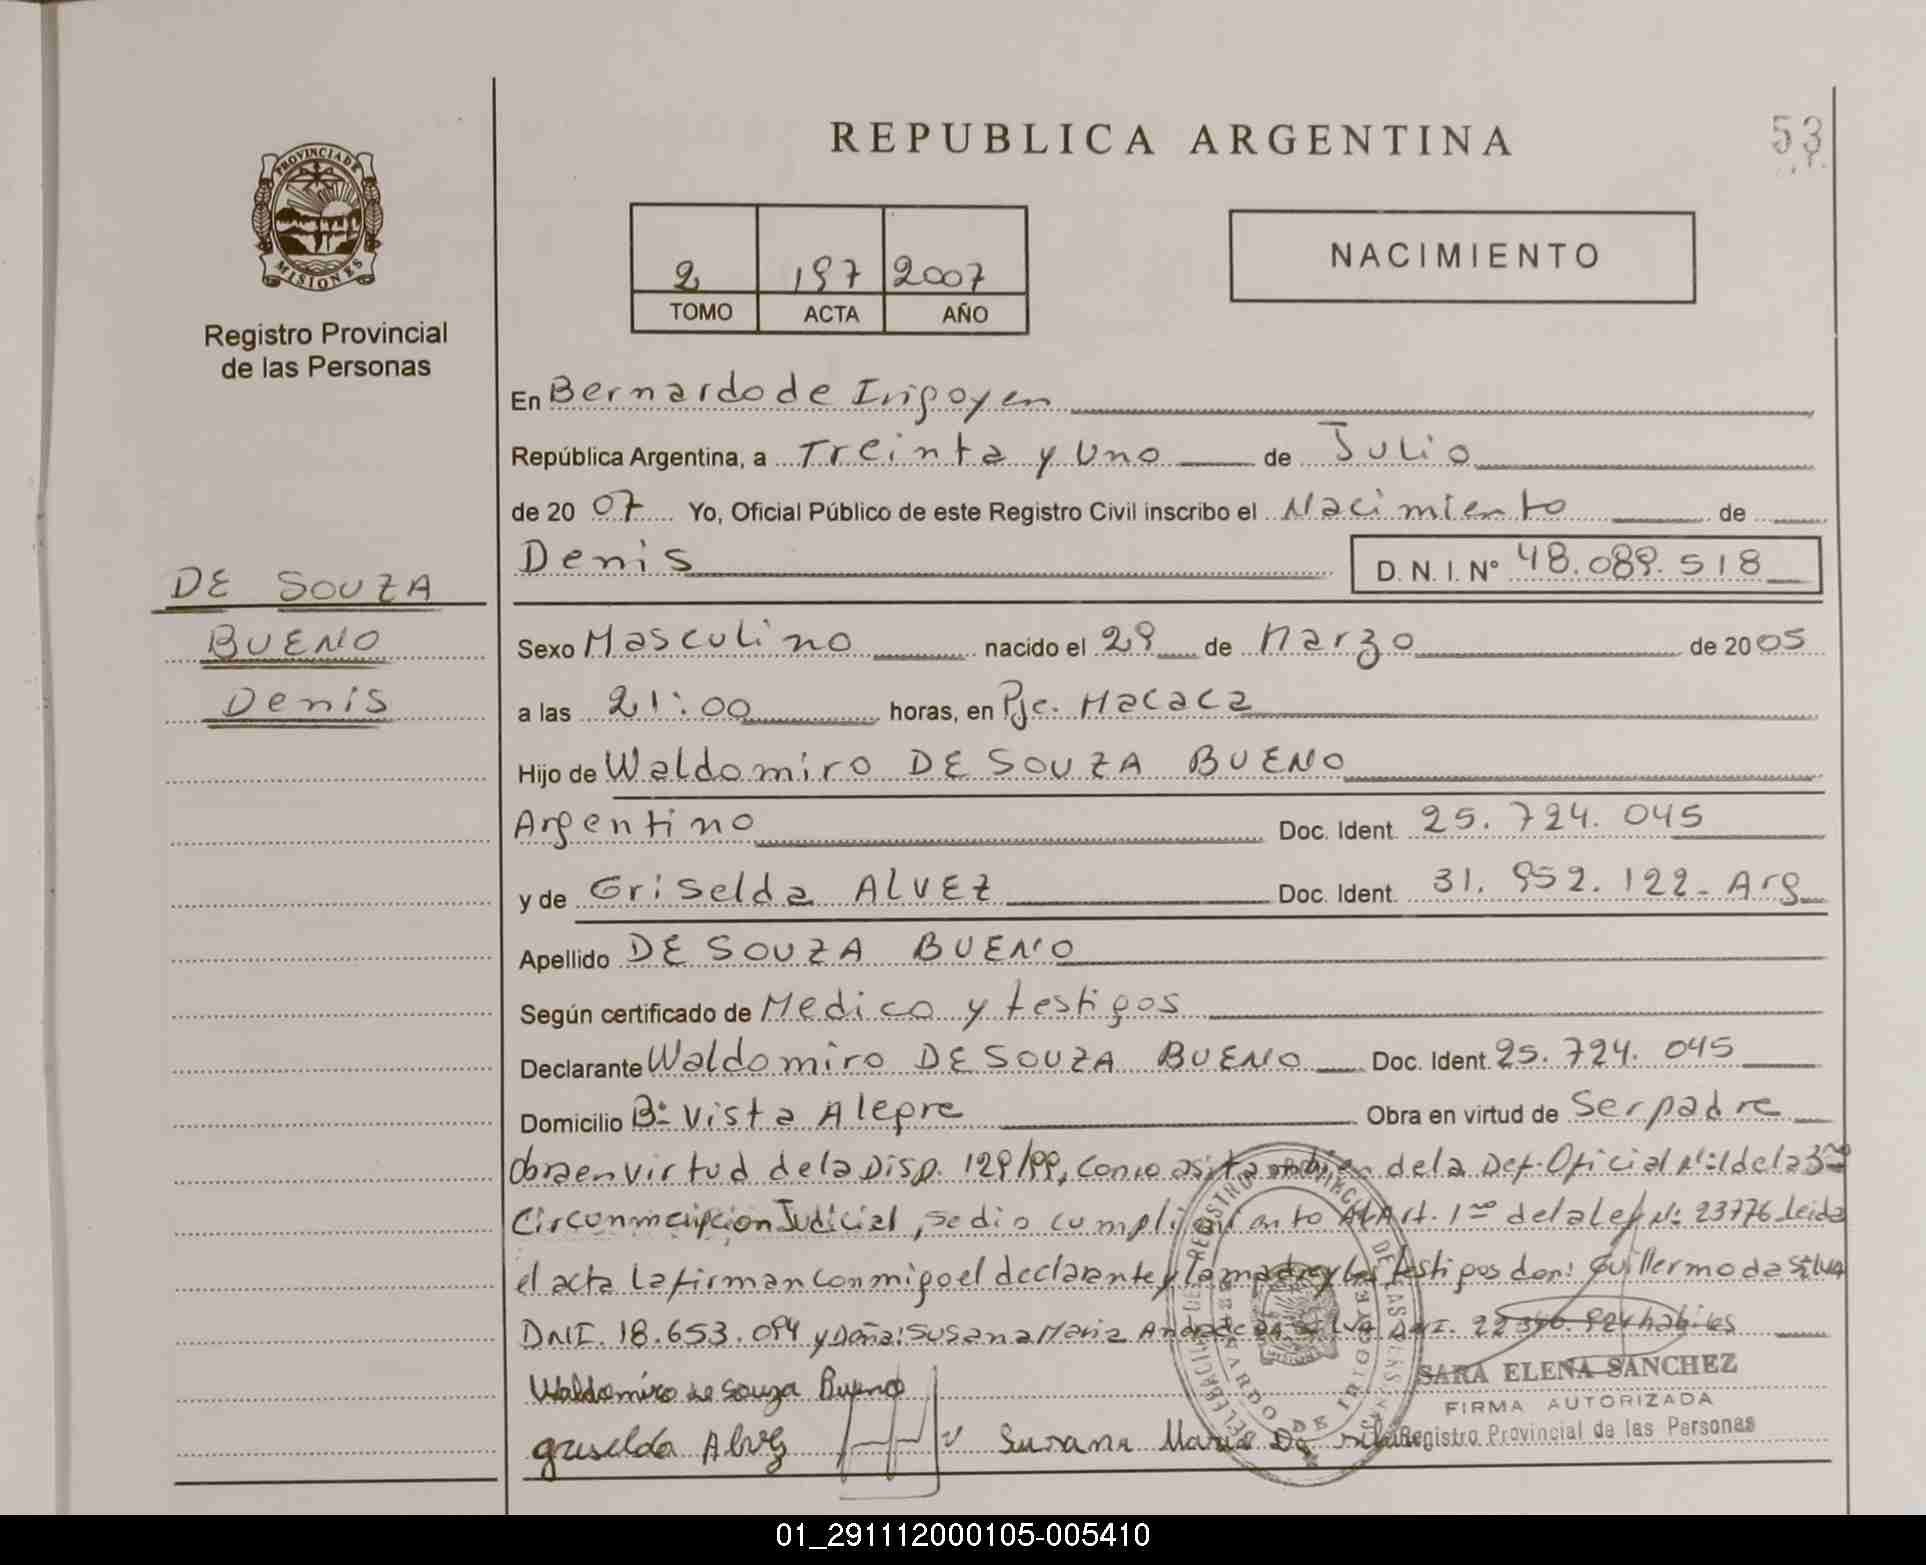 REPUBLICA ARGENTINA
53
PROVINCIA DE
MISIONES
Registro Provincial
de las Personas
2 197 2007
TOMO ACTA AÑO
NACIMIENTO
En Bernardo de Irigoyen
República Argentina, a Treinta y Uno de Julio
de 20 07 Yo, Oficial Público de este Registro Civil inscribo el Nacimiento de
Denis D. N. I. N° 48.089.518
DE SOUZA
BUENO
Denis
Sexo Masculino nacido el 29 de Marzo de 20 05
a las 21:00 horas, en Pje. Macaca
Hijo de Waldomiro DE SOUZA BUENO
Argentino Doc. Ident. 25.724.045
y de Griselda ALVEZ Doc. Ident. 31.952.122- Arg
Apellido DE SOUZA BUENO
Según certificado de Medico y testigos
Declarante Waldomiro DE SOUZA BUENO Doc. Ident. 25.724.045
Domicilio B° Vista Alegre Obra en virtud de Ser padre
Obra en virtud de la Disp. 129/99, como asi tambien de la Def. Oficial N° 1 de la 3ra
Circonmcripcion Judicial, se dio cumplimiento Al Art. 1ro de la Ley N° 23776 Leida
el acta la firman conmigo el declarante y la madre y los testigos don: Guillermo da Silva
DNI. 18.653.094 y Doña: Susana Maria Andrade da Silva DNI. 22 habiles
Waldomiro de Souza Bueno
Griselda Alvez
Susana Maria Da Silva
SARA ELENA SANCHEZ
FIRMA AUTORIZADA
Registro Provincial de las Personas
01_291112000105-005410